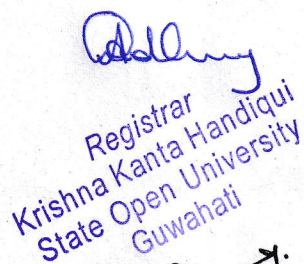 Registrar
Krishna Kanta Handiqui
State Open University
Guwahati